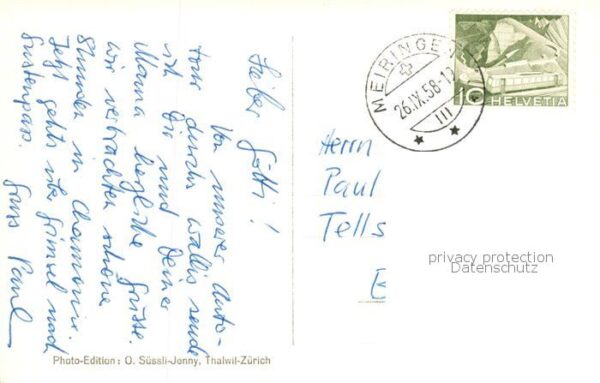 Lieber Götti!
Von unserer Auto-
tour durchs Wallis sende
ich Dir und Deiner
Mamma herzliche Grüsse.
Wir verbrachten schöne
Stunden in Chamonix.
Jetzt geht's über Grimsel nach
Sustenpass. Gruss Paul
Photo-Edition: O. Süssli-Jenny, Thalwil-Zürich
MEIRINGEN
26.IX.58-12
III
10 HELVETIA
Herrn
Paul
Tells
privacy protection
Datenschutz